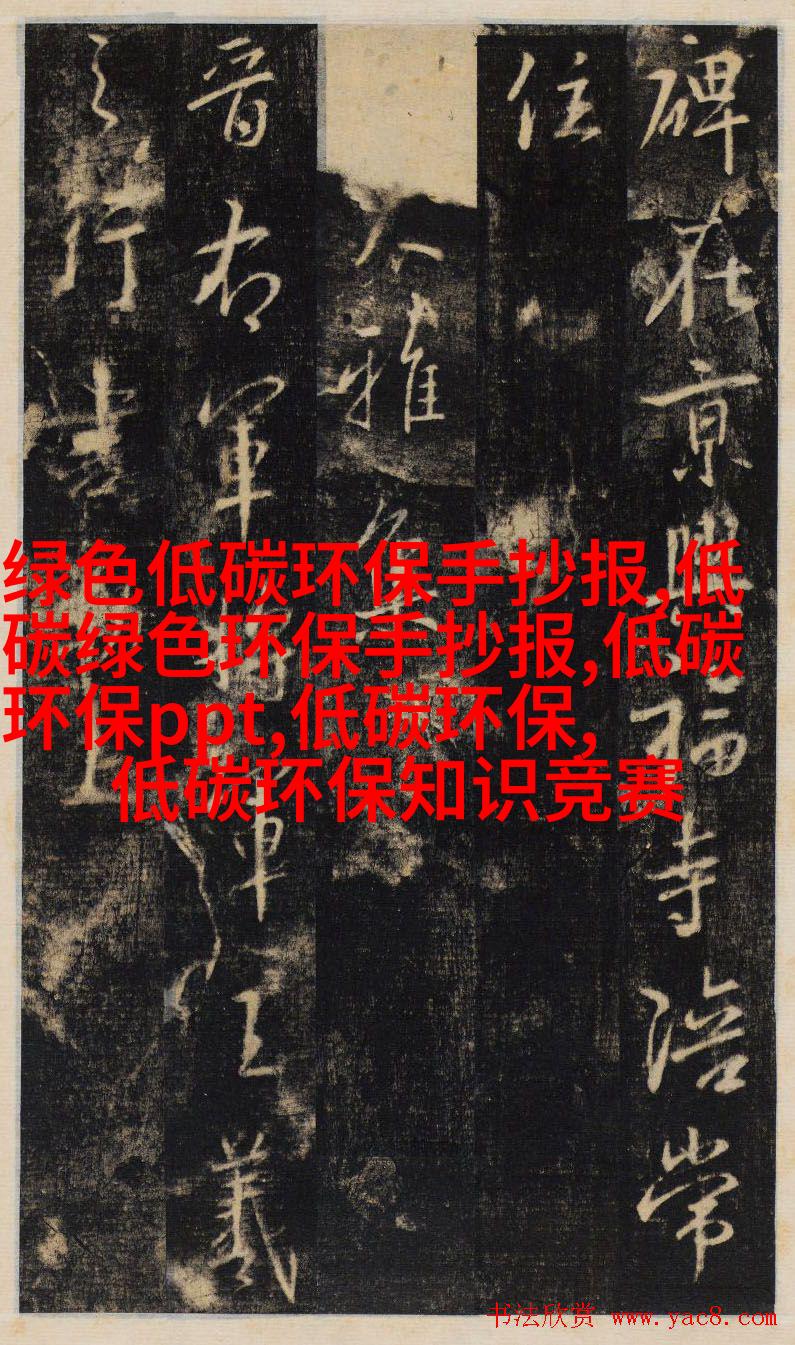 碑在京興福寺陪常
住
大雅集
晉右軍將軍王羲
之行書
绿色低碳环保手抄报,低
碳绿色环保手抄报,低碳
环保ppt,低碳环保,
低碳环保知识竞赛
书法欣赏 www.yac8.com